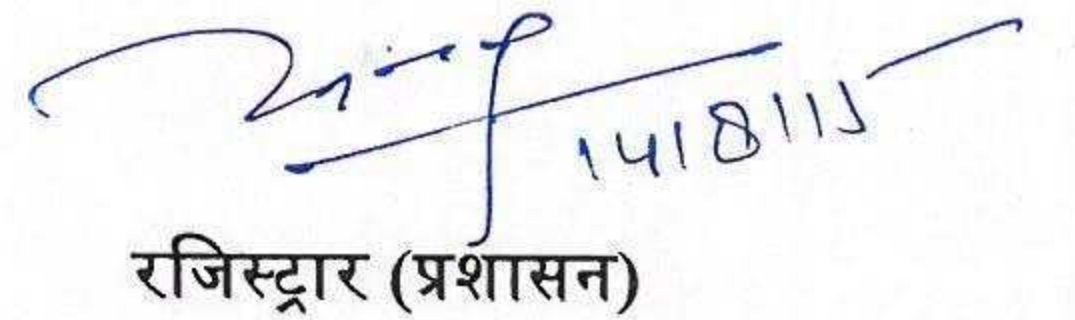 14/8/15
रजिस्ट्रार (प्रशासन)